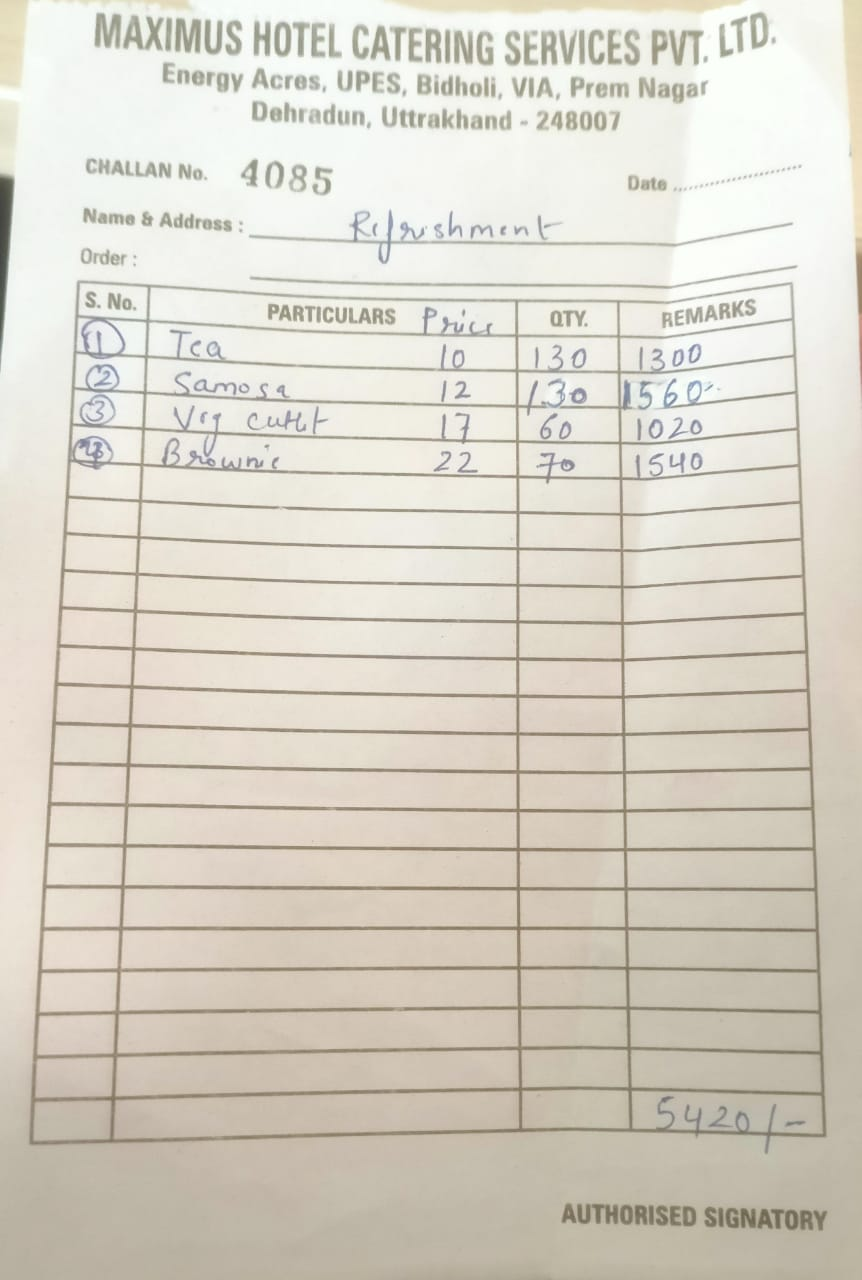 MAXIMUS HOTEL CATERING SERVICES PVT. LTD.
Energy Acres, UPES, Bidholi, VIA, Prem Nagar
Dehradun, Uttrakhand - 248007
CHALLAN No. 4085 Date ....................
Name & Address : Refrishment
Order :
S. No. PARTICULARS Price QTY. REMARKS
1 Tea 10 130 1300
2 Samosa 12 130 1560-
3 Veg cutlet 17 60 1020
Brownie 22 70 1540
5420/-
AUTHORISED SIGNATORY